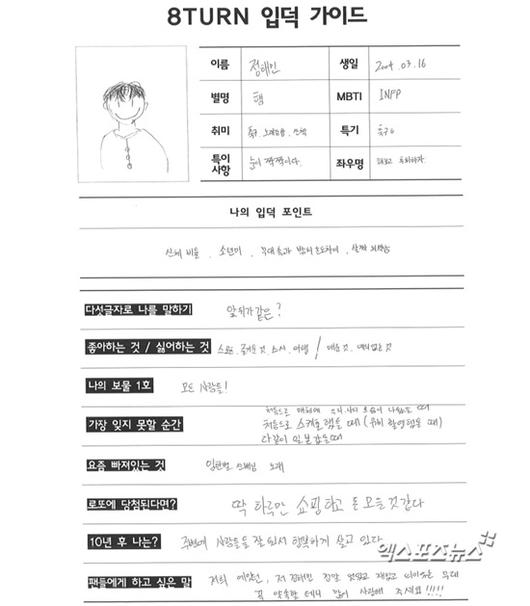 8TURN 입덕 가이드
이름 정해민 생일 2004. 03. 16
별명 햄 MBTI INFP
취미 축구, 노래듣기, 산책 특기 축구
특이사항 눈이 짝짝이다. 좌우명 해보고 후회하자.
나의 입덕 포인트
신체 비율, 소년미, 무대 위와 밖의
다섯글자로 나를 말하기 앞뒤가같은?
좋아하는 것 / 싫어하는 것 스포츠, 즐거운 것, 스시, 여행 / 매운 것
나의 보물 1호 모든 사람들!
가장 잊지 못할 순간 처음으로 때
처음으로 스케줄했을 때 (뮤비 촬영했을 때)
다같이 일본갔을때
요즘 빠져있는 것 임한별 선배님 노래
로또에 당첨된다면? 딱 하루만 쇼핑하고 돈 모을것같다
10년 후 나는? 주변에 사람들을 잘 행복하게 살고 있다.
팬들에게 하고 싶은 말 저희 에잇턴, 저 정말 멋있고 재밌고 무대
꼭 약속할 테니 많이 사랑해 주세요!!!!!
엑스포츠뉴스